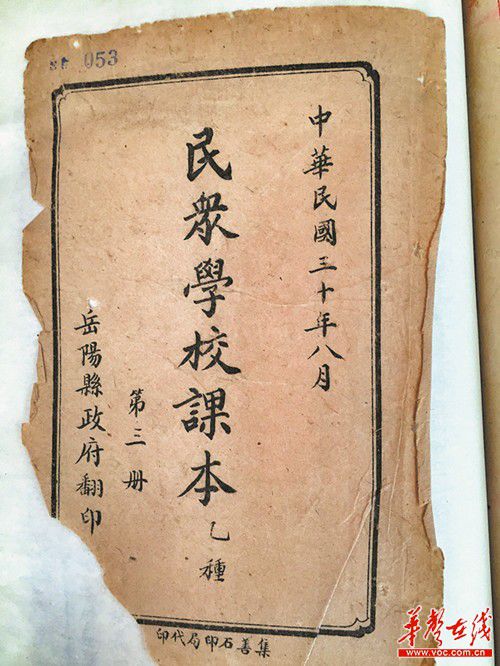 053
中華民國三十年八月
民衆學校課本乙種
第三册
岳陽縣政府翻印
集善石印局代印
華聲在綫
www.voc.com.cn